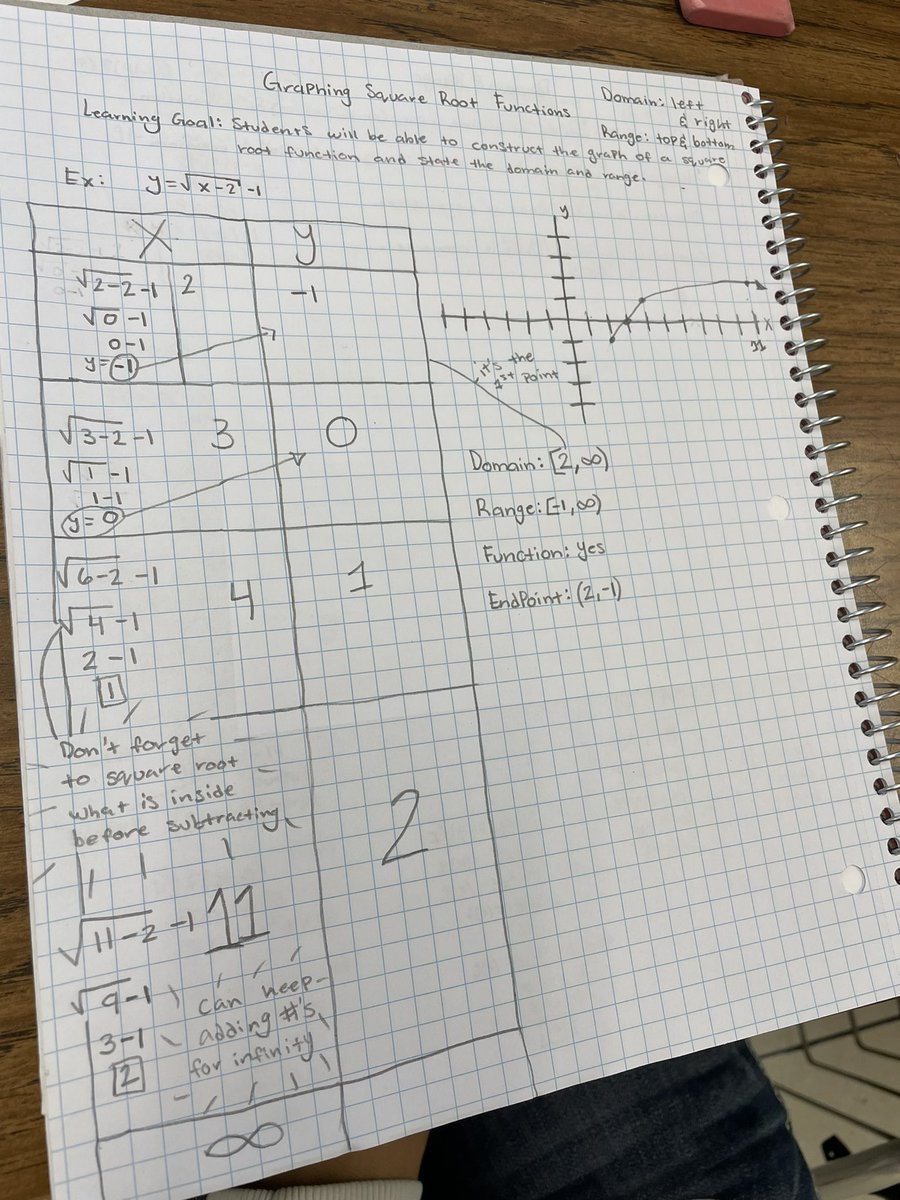 Graphing Square Root Functions
Domain: left
& right
Range: top & bottom
Learning Goal: Students will be able to construct the graph of a square
root function and state the domain and range.
Ex: y=√x-2 -1
X y
√2-2 -1 2 -1
√0 -1
0-1
y=-1
√3-2 -1 3 0
√1 -1
1-1
y=0
√6-2 -1 4 1
√4 -1
2-1
1
Don't forget
to square root
what is inside
before subtracting
√11-2 -1 11 2
√9-1
3-1
2
can keep
adding #'s
for infinity
∞
y
x
11
it's the
1st point
Domain: [2,∞)
Range: [-1,∞)
Function: yes
EndPoint: (2,-1)